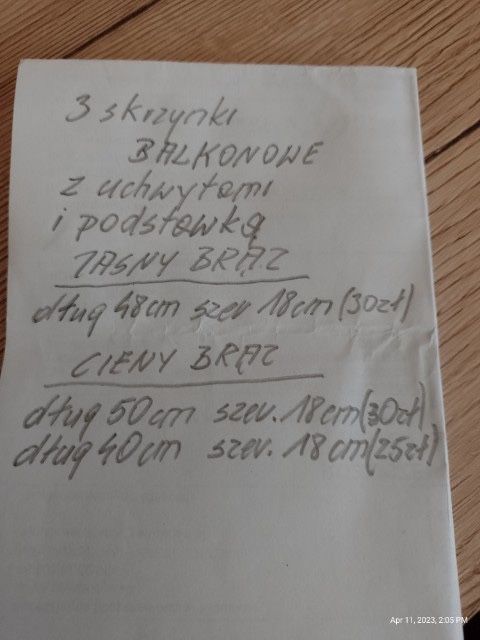 3 skrzynki
BALKONOWE
z uchwytami
i podstawką
JASNY BRĄZ
dług 48cm szer 18cm (30zł)
CIENY BRĄZ
dług 50cm szer. 18cm (30zł)
dług 40cm szer. 18cm (25zł)
Apr 11, 2023, 2:05 PM